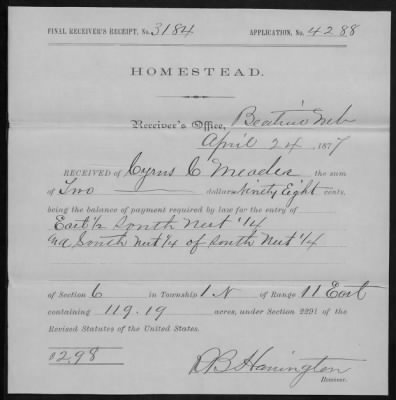 FINAL RECEIVER'S RECEIPT, No. 3184 APPLICATION, No. 4288
HOMESTEAD.
Receiver's Office, Beatrice Neb
April 24, 1877
RECEIVED OF Cyrus C Meader the sum
of Two dollars Ninety Eight cents,
being the balance of payment required by law for the entry of
East ½ South West ¼
and South West ¼ of South West ¼
of Section 6 in Township 1 N of Range 11 East
containing 119.19 acres, under Section 2291 of the
Revised Statutes of the United States.
$2.98
Receiver.